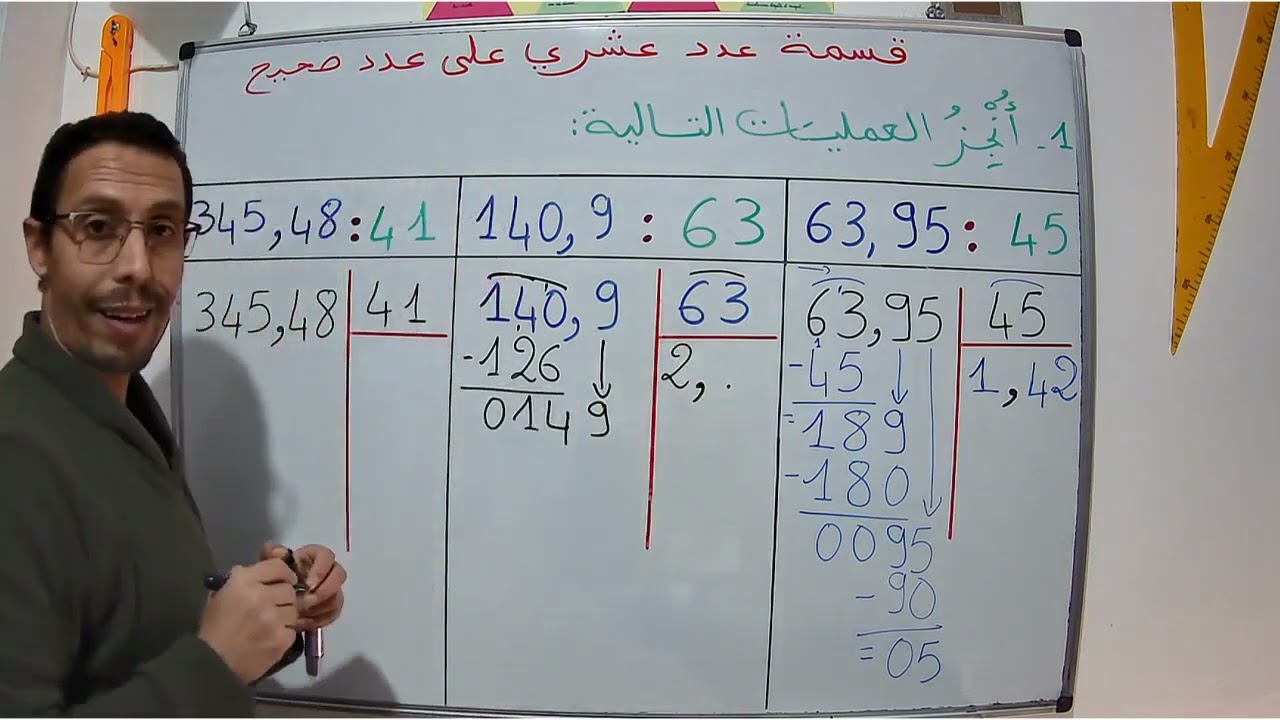 قسمة عدد عشري على عدد صحيح
1. أُنْجِزُ العمليات التالية:
63,95 : 45
140,9 : 63
345,48 : 41
63,95 45
-45 1,42
=189
-180
0095
-90
=05
140,9 63
-126 2, .
0149
345,48 41